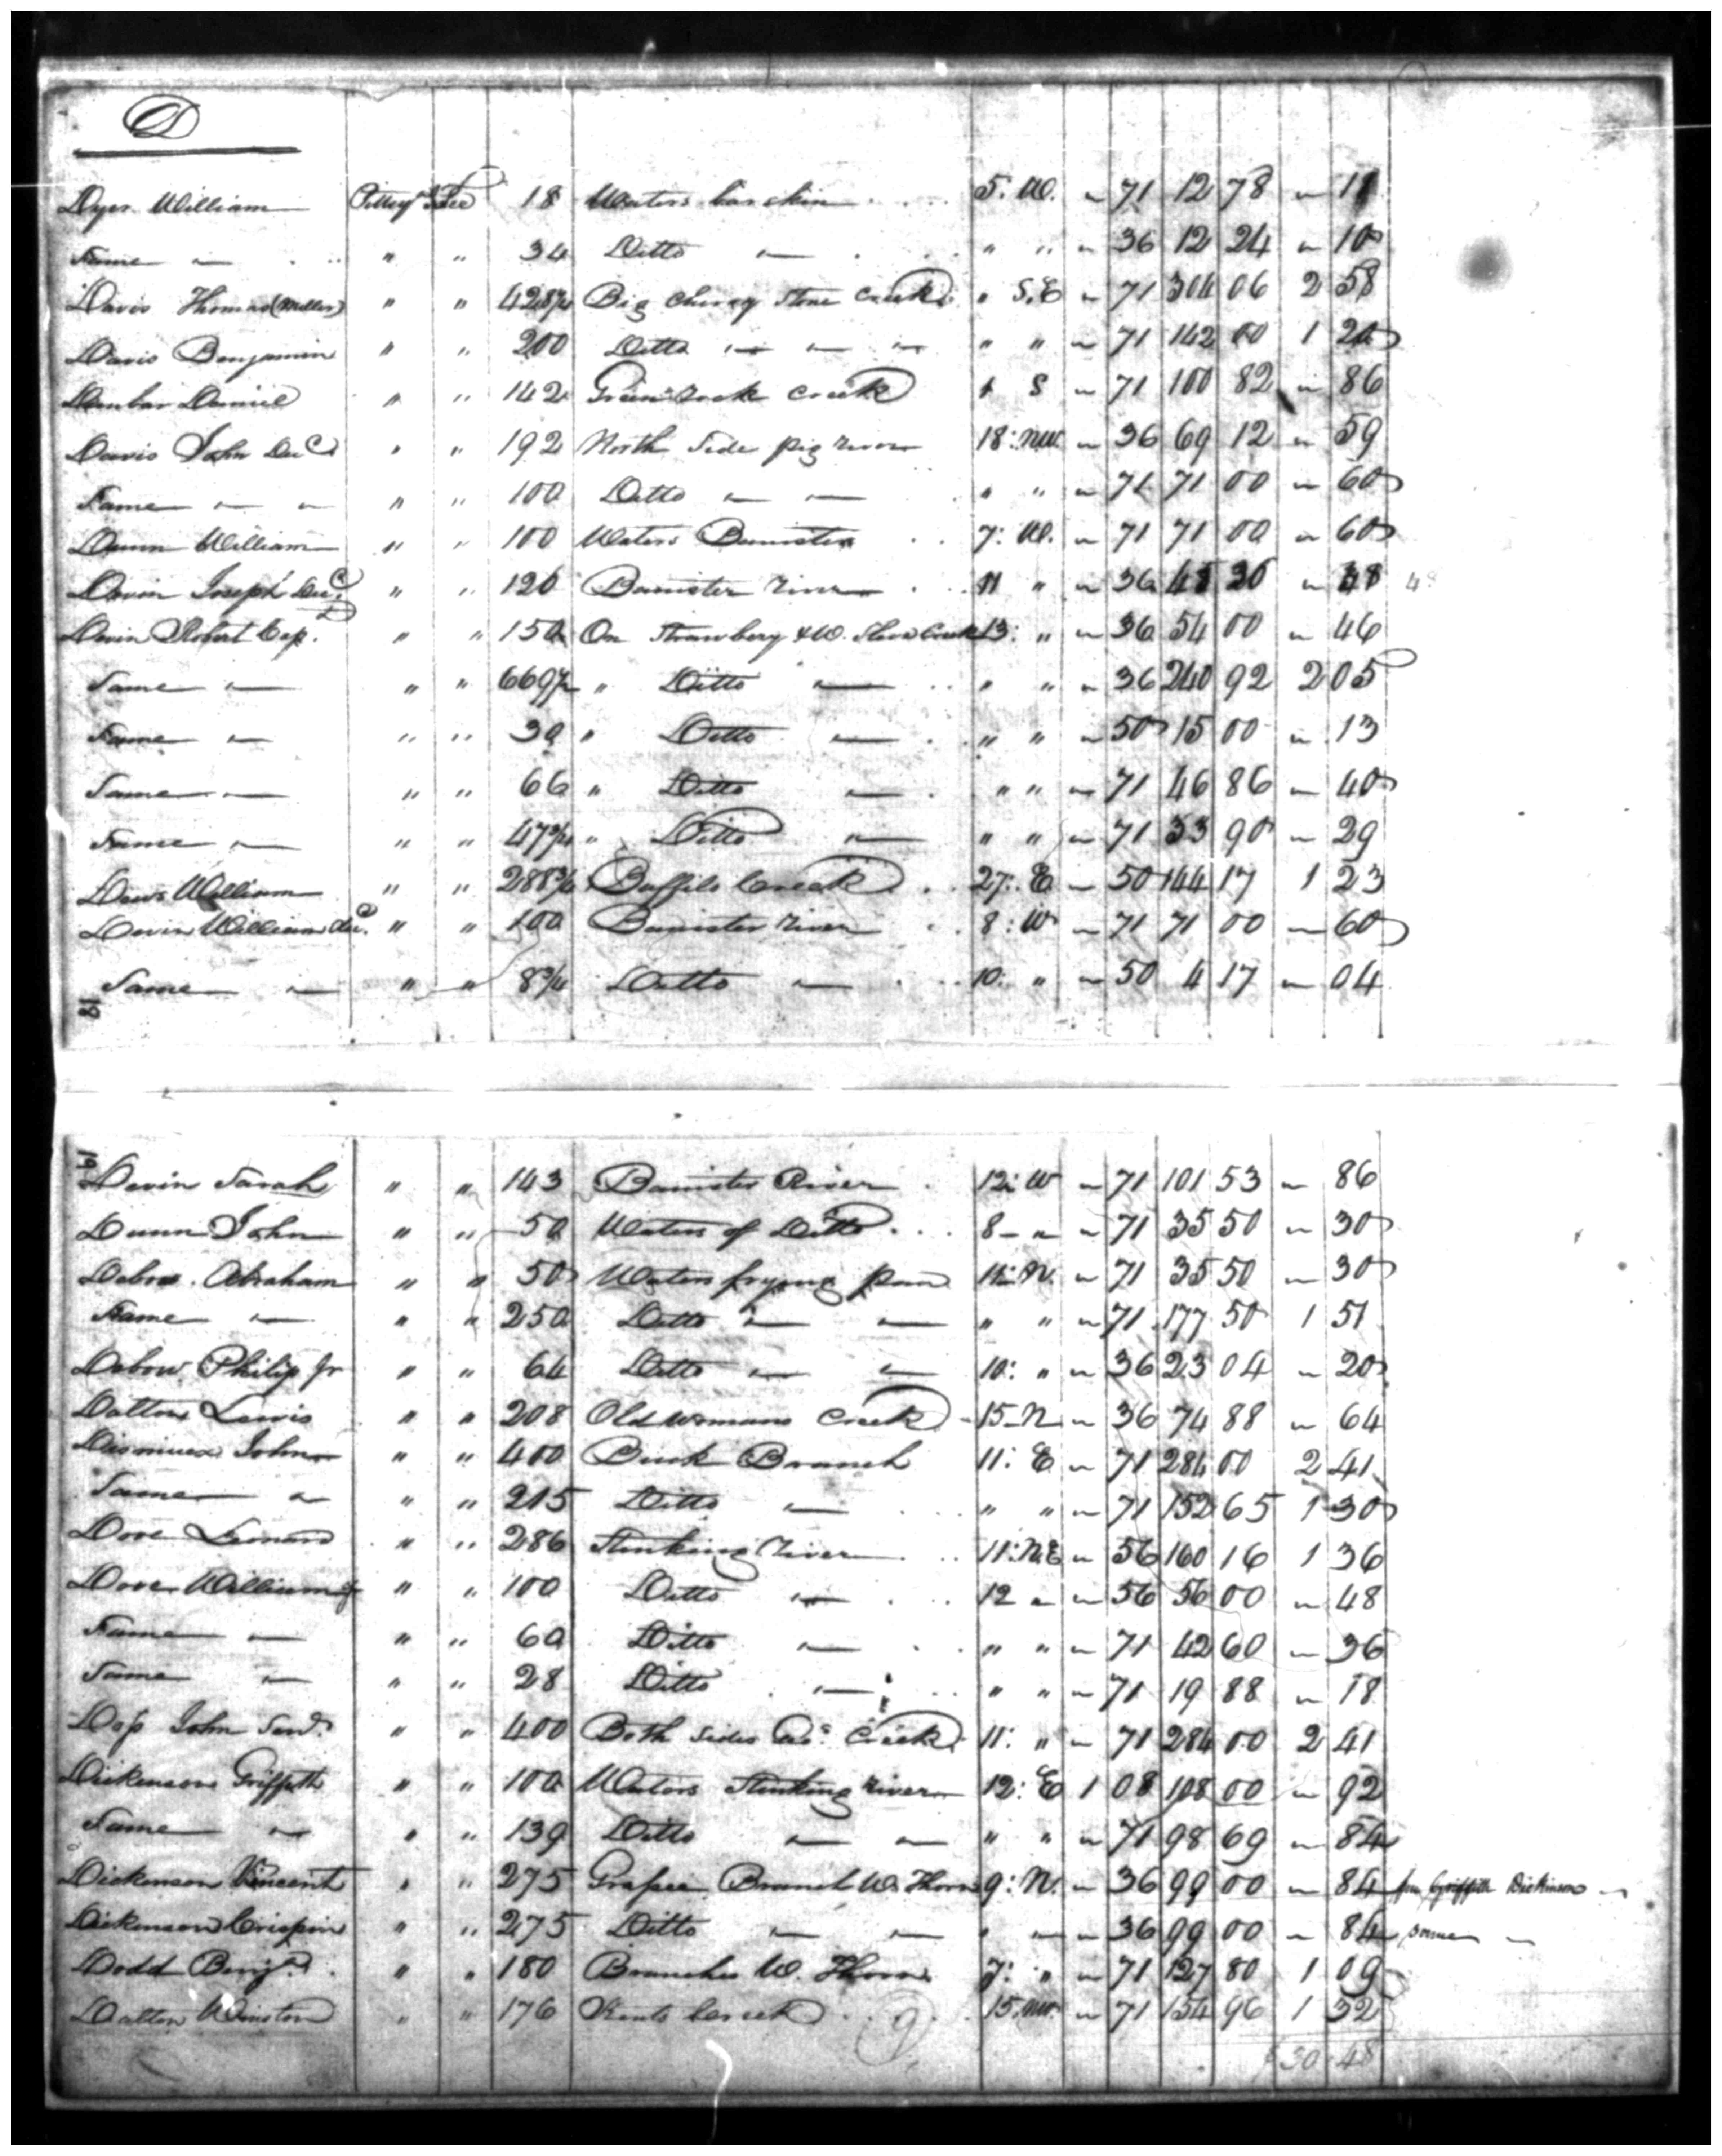 D
Dyer William Pittsyl Fee 18 Waters bearskin 5. W. " 71 12 78 " 11
Same " " " 34 Ditto " " " " 36 12 24 " 10
Davis Thomas (Miller) " " 428 1/4 Big Cherry Stone Creek " S.E " 71 304 06 2 58
Davis Benjamin " " 200 Ditto " " " " " " 71 142 00 1 20
Dunbar Daniel " " 142 Green rock Creek " S " 71 100 82 " 86
Davis John Decd " " 192 North Side pig river 18: NW. " 36 69 12 " 59
Same " " " " 100 Ditto " " " " " 71 71 00 " 60
Dunn William " " 100 Waters Banister 7: W. " 71 71 00 " 60
Devin Joseph Decd " " 120 Banister river 11 " " 36 " 48 48
Devin Robert Cap. " " 150 On Strawbery & W. Thorn Creek 13: " " 36 54 00 " 46
Same " " " 669 1/4 " Ditto " " " " 36 240 92 2 05
Same " " " 30 " Ditto " " " " 50 15 00 " 13
Same " " " 66 " Ditto " " " " 71 46 86 " 40
Same " " " 47 3/4 " Ditto " " " " 71 33 90 " 29
Dews William " " 288 3/4 Buffelo Creek 27: E " 50 144 17 1 23
Devin William decd. " " 100 Banister river 8: W " 71 71 00 " 60
Same " " " 8 3/4 Ditto " 10: " " 50 4 17 " 04
18
19
Devin Sarah " " 143 Banister River 12: W " 71 101 53 " 86
Dunn John " " 50 Waters of Ditto 8 " " 71 35 50 " 30
Debow Abraham " " 50 Waters frying pan 11: N. " 71 35 50 " 30
Same " " " 250 Ditto " " " " " 71 177 50 1 51
Debow Philip Jr " " 64 Ditto " " 10: " " 36 23 04 " 20
Dalton Lewis " " 208 Old womans Creek 15 N " 36 74 88 " 64
Dismuex John " " 400 Buck Branch 11: E " 71 284 00 2 41
Same " " " 215 Ditto " " " " 71 152 65 1 30
Dove Leonard " " 286 Stinking River 11: NE " 56 160 16 1 36
Dove William Jr " " 100 Ditto " 12 " " 56 56 00 " 48
Same " " " 60 Ditto " " " " 71 42 60 " 36
Same " " " 28 Ditto " " " " 71 19 88 " 18
Doss John Send. " " 400 Both sides Do. Creek 11: " " 71 284 00 2 41
Dickenson Griffeth " " 100 Waters Stinking river 12: E 1 08 108 00 " 92
Same " " " 139 Ditto " " " " " 71 98 69 " 84
Dickenson Vincent " " 275 Grassee Branch W. Thorn 9: N. " 36 99 00 " 84 from Griffith Dickinson
Dickenson Crispin " " 275 Ditto " " " " " 36 99 00 " 84 same
Dodd Benja. " " 180 Branches W. Thorn 7: " " 71 127 80 1 09
Dalton Winston " " 176 Rents Creek 15. NW. " 71 154 96 1 32
9
$ 30.48